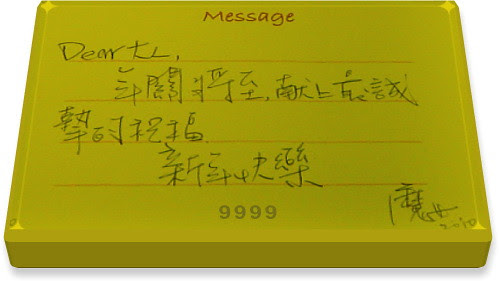 Message
Dear 大L,
年關將至,献上最誠
摯的祝福
新年快樂
9999
2010